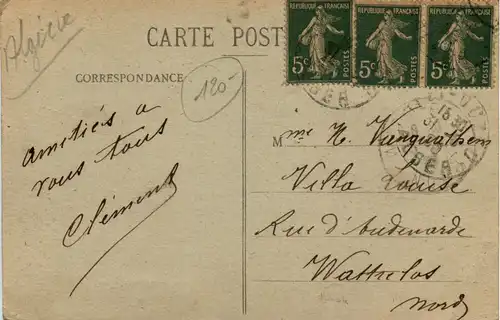 Algérie
CARTE POST
REPUBLIQUE FRANÇAISE REPUBLIQUE FRANÇAISE REPUBLIQUE FRANÇAISE
5c POSTES 5c POSTES 5c POSTES
CORRESPONDANCE
120-
15 30
31
ALGER
amitiés a
vous tous
Clément
Mme H. Vanguathem
Villa Louise
Rue d'Audenarde
Wattrelos
Nord